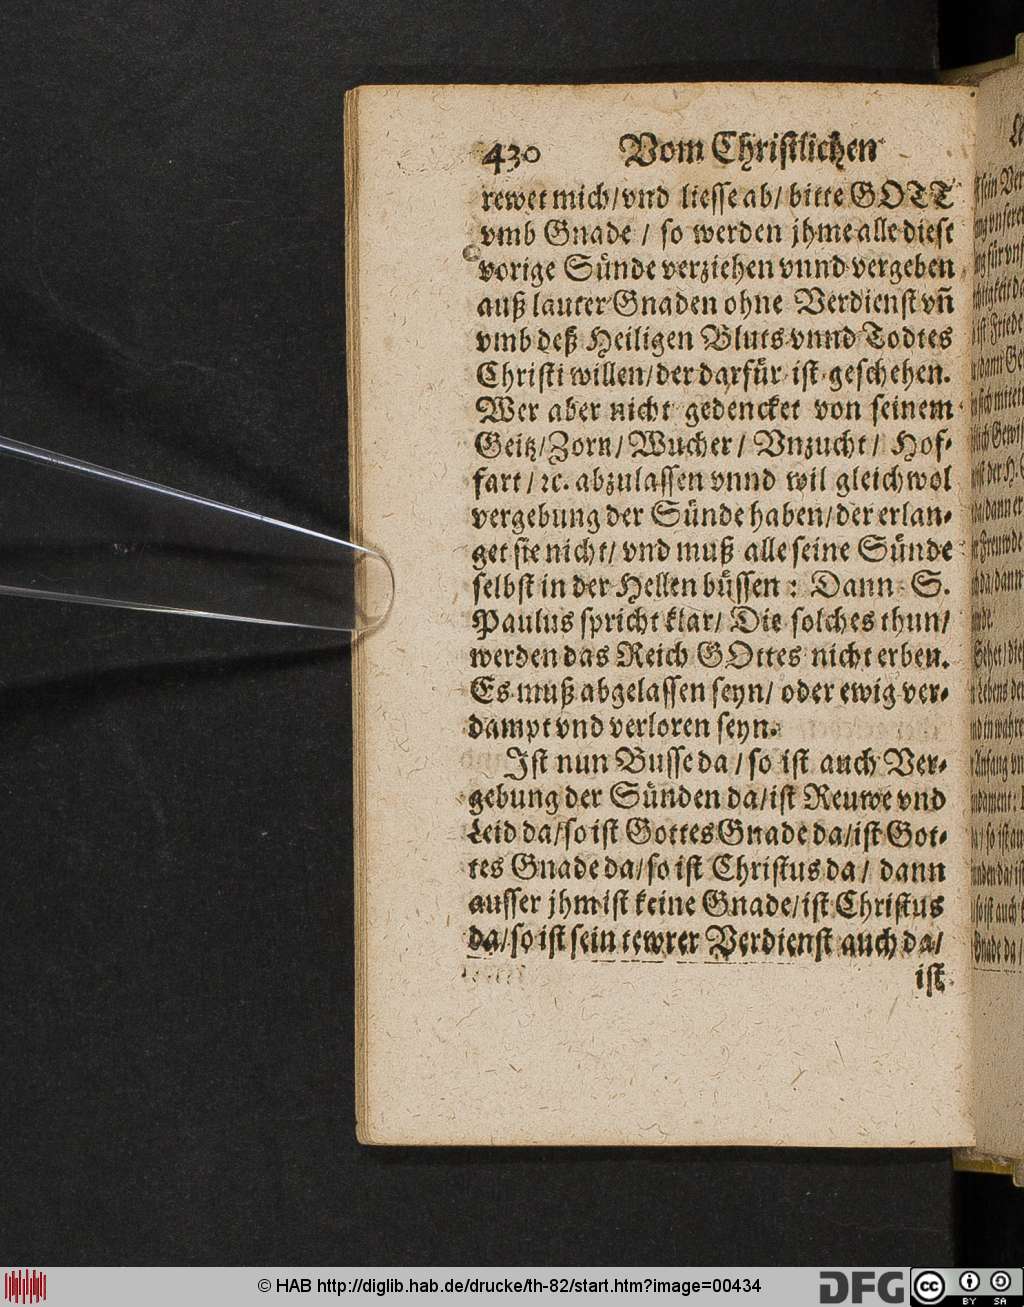 430 Vom Christlichen
rewet mich/vnd liesse ab/ bitte GOTT
vmb Gnade / so werden jhme alle diese
vorige Sünde verziehen vnnd vergeben
auß lauter Gnaden ohne Verdienst vñ
vmb deß Heiligen Bluts vnnd Todtes
Christi willen/der darfür ist geschehen.
Wer aber nicht gedencket von seinem
Geitz/Zorn/ Wucher/ Vnzucht/ Hof-
fart/ ꝛc. abzulassen vnnd wil gleichwol
vergebung der Sünde haben/der erlan-
get sie nicht/ vnd muß alle seine Sünde
selbst in der Hellen büssen: Dann S.
Paulus spricht klar/ Die solches thun/
werden das Reich GOttes nicht erben.
Es muß abgelassen seyn/ oder ewig ver-
dampt vnd verloren seyn.
Ist nun Busse da/ so ist auch Ver-
gebung der Sünden da/ist Reuwe vnd
Leid da/so ist Gottes Gnade da/ist Got-
tes Gnade da/so ist Christus da/ dann
ausser jhm ist keine Gnade/ist Christus
da/so ist sein tewrer Verdienst auch da/
ist
© HAB http://diglib.hab.de/drucke/th-82/start.htm?image=00434
DFG
cc BY SA